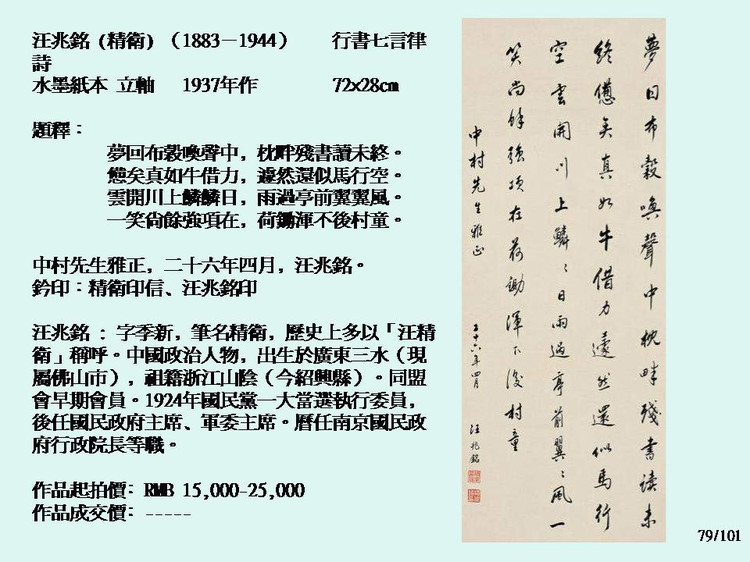 汪兆銘 (精衛) （1883－1944） 行書七言律
詩
水墨紙本 立軸 1937年作 72x28cm
題釋：
夢回布穀喚聲中，枕畔殘書讀未終。
憊矣真如牛借力，遽然還似馬行空。
雲開川上鱗鱗日，雨過亭前翼翼風。
一笑尚餘強項在，荷鋤渾不後村童。
中村先生雅正，二十六年四月，汪兆銘。
鈐印：精衛印信、汪兆銘印
汪兆銘 : 字季新，筆名精衛，歷史上多以「汪精
衛」稱呼。中國政治人物，出生於廣東三水（現
屬佛山市），祖籍浙江山陰（今紹興縣）。同盟
會早期會員。1924年國民黨一大當選執行委員，
後任國民政府主席、軍委主席。曆任南京國民政
府行政院長等職。
作品起拍價: RMB 15,000-25,000
作品成交價: -----
夢回布穀喚聲中枕畔殘書读未
終憊矣真如牛借力遽然還似馬行
空雲開川上鱗〻日雨過亭前翼〻風一
笑尚餘強項在荷鋤渾不後村童
中村先生雅正
二十六年四月 汪兆銘
79/101